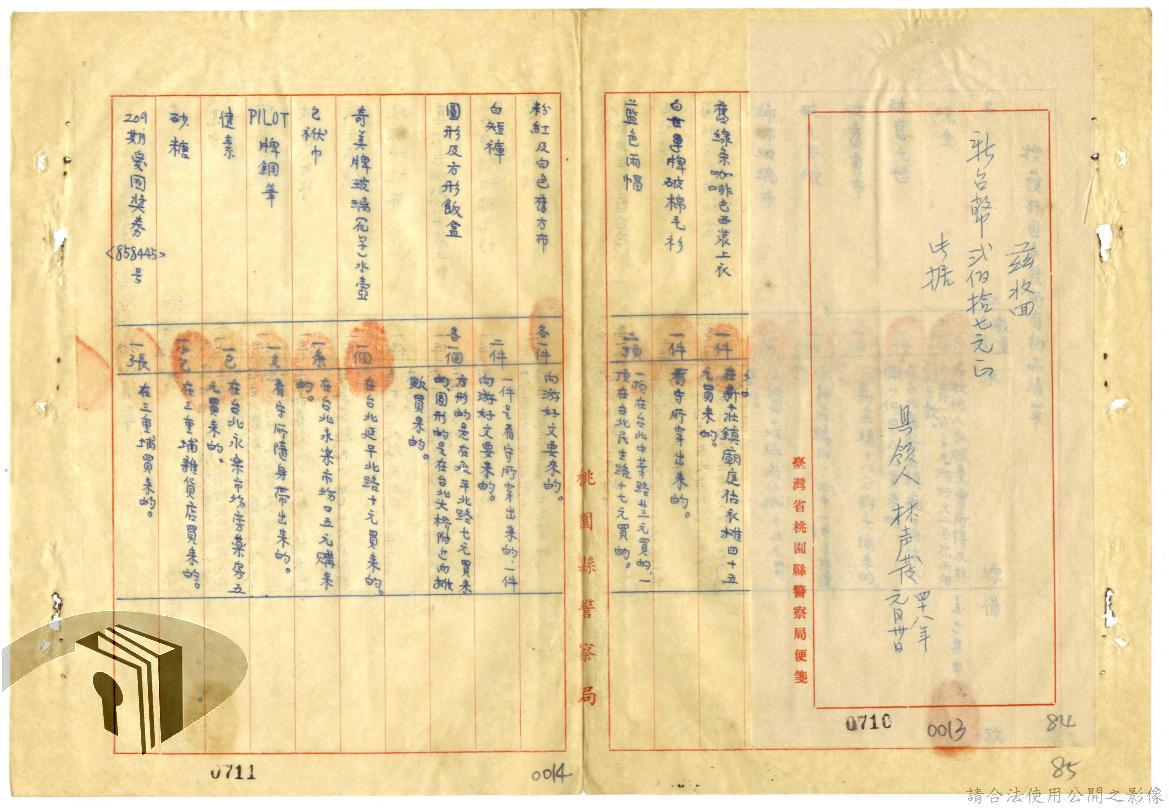 茲收回
新台幣貳佰拾七元正
此据
具領人林声發 四十八年元月廿日
臺灣省桃園縣警察局便箋
0710
0013
84
85
舊線条咖啡色西裝上衣 一件 在新莊鎮廟庭估衣攤四十五元買來的。
白世界牌破棉毛衫 一件 看守所穿出來的。
藍色雨帽 二頂 一頂在台北中華路廿三元買的,一頂在台北民生路十七元買的。
桃園縣警察局
粉紅及白色舊方布 各一件 向游好文要來的。
白短褲 二件 一件是看守所穿出來的,一件向游好文要來的。
圓形及方形飯盒 各一個 方形的是在延平北路七元買來的,圓形的是在台北大橋附近向攤販買來的。
奇美牌玻璃(瓜子)水壺 一個 在台北延平北路十元買來的。
包袱巾 一条 在台北永樂市場口五元購來的。
PILOT牌鋼筆 一支 看守所隨身帶出來的。
健素 一包 在台北永樂市場旁藥房五元買來的。
砂糖 一包 在三重埔雜貨店買來的。
209期愛國獎券<858445>号 一張 在三重埔買來的。
0711
0014
請合法使用公開之影像